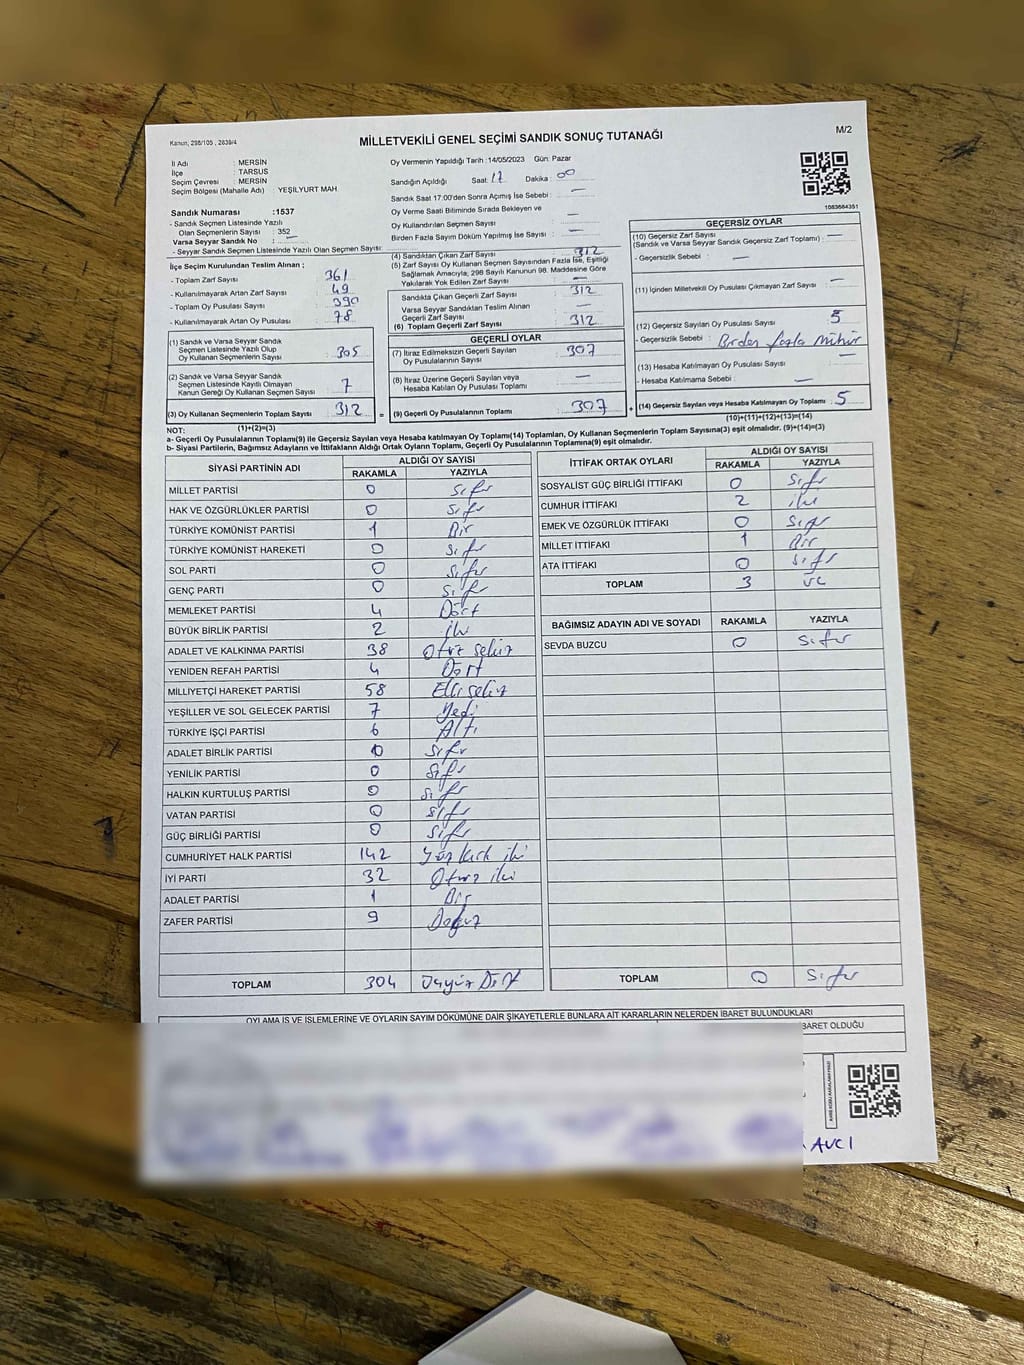 Kanun, 298/105 , 2839/4
MİLLETVEKİLİ GENEL SEÇİMİ SANDIK SONUÇ TUTANAĞI
M/2
İl Adı : MERSİN
İlçe : TARSUS
Seçim Çevresi : MERSİN
Seçim Bölgesi (Mahalle Adı) : YEŞİLYURT MAH
Sandık Numarası :1537
- Sandık Seçmen Listesinde Yazılı
Olan Seçmenlerin Sayısı : 352
Varsa Seyyar Sandık No : —
- Seyyar Sandık Seçmen Listesinde Yazılı Olan Seçmen Sayısı:
Oy Vermenin Yapıldığı Tarih :14/05/2023 Gün: Pazar
Sandığın Açıldığı Saat: 17 Dakika : 00
Sandık Saat 17:00'den Sonra Açımış İse Sebebi : —
Oy Verme Saati Bitiminde Sırada Bekleyen ve
Oy Kullandırılan Seçmen Sayısı : —
Birden Fazla Sayım Döküm Yapılmış İse Sayısı : —
1083684351
İlçe Seçim Kurulundan Teslim Alınan ;
- Toplam Zarf Sayısı 361
- Kullanılmayarak Artan Zarf Sayısı 49
- Toplam Oy Pusulası Sayısı 390
- Kullanılmayarak Artan Oy Pusulası 78
(1) Sandık ve Varsa Seyyar Sandık
Seçmen Listesinde Yazılı Olup
Oy Kullanan Seçmenlerin Sayısı : 305
(2) Sandık ve Varsa Seyyar Sandık
Seçmen Listesinde Kayıtlı Olmayan
Kanun Gereği Oy Kullanan Seçmen Sayısı : 7
(3) Oy Kullanan Seçmenlerin Toplam Sayısı : 312 =
(1)+(2)=(3)
(4) Sandıktan Çıkan Zarf Sayısı : 312
(5) Zarf Sayısı Oy Kullanan Seçmen Sayısından Fazla İse, Eşitliği
Sağlamak Amacıyla, 298 Sayılı Kanunun 98. Maddesine Göre
Yakılarak Yok Edilen Zarf Sayısı : —
Sandıkta Çıkan Geçerli Zarf Sayısı : 312
Varsa Seyyar Sandıktan Teslim Alınan
Geçerli Zarf Sayısı : —
(6) Toplam Geçerli Zarf Sayısı : 312
GEÇERLİ OYLAR
(7) İtiraz Edilmeksizin Geçerli Sayılan
Oy Pusulalarının Sayısı : 307
(8) İtiraz Üzerine Geçerli Sayılan veya
Hesaba Katılan Oy Pusulası Toplamı : —
(9) Geçerli Oy Pusulalarının Toplamı : 307 +
GEÇERSİZ OYLAR
(10) Geçersiz Zarf Sayısı
(Sandık ve Varsa Seyyar Sandık Geçersiz Zarf Toplamı) : —
- Geçersizlik Sebebi : —
(11) İçinden Milletvekili Oy Pusulası Çıkmayan Zarf Sayısı : —
(12) Geçersiz Sayılan Oy Pusulası Sayısı : 5
- Geçersizlik Sebebi : Birden fazla mühür
(13) Hesaba Katılmayan Oy Pusulası Sayısı : —
- Hesaba Katılmama Sebebi : —
(14) Geçersiz Sayılan veya Hesaba Katılmayan Oy Toplamı : 5
(10)+(11)+(12)+(13)=(14)
NOT:
a- Geçerli Oy Pusulalarının Toplamı(9) ile Geçersiz Sayılan veya Hesaba katılmayan Oy Toplamı(14) Toplamları, Oy Kullanan Seçmenlerin Toplam Sayısına(3) eşit olmalıdır. (9)+(14)=(3)
b- Siyasi Partilerin, Bağımsız Adayların ve İttifakların Aldığı Ortak Oyların Toplamı, Geçerli Oy Pusulalarının Toplamına(9) eşit olmalıdır.
SİYASİ PARTİNİN ADI ALDIĞI OY SAYISI
RAKAMLA YAZIYLA
MİLLET PARTİSİ 0 Sıfır
HAK VE ÖZGÜRLÜKLER PARTİSİ 0 Sıfır
TÜRKİYE KOMÜNİST PARTİSİ 1 Bir
TÜRKİYE KOMÜNİST HAREKETİ 0 Sıfır
SOL PARTİ 0 Sıfır
GENÇ PARTİ 0 Sıfır
MEMLEKET PARTİSİ 4 Dört
BÜYÜK BİRLİK PARTİSİ 2 İki
ADALET VE KALKINMA PARTİSİ 38 Otuz sekiz
YENİDEN REFAH PARTİSİ 4 Dört
MİLLİYETÇİ HAREKET PARTİSİ 58 Elli sekiz
YEŞİLLER VE SOL GELECEK PARTİSİ 7 Yedi
TÜRKİYE İŞÇİ PARTİSİ 6 Altı
ADALET BİRLİK PARTİSİ 0 Sıfır
YENİLİK PARTİSİ 0 Sıfır
HALKIN KURTULUŞ PARTİSİ 0 Sıfır
VATAN PARTİSİ 0 Sıfır
GÜÇ BİRLİĞİ PARTİSİ 0 Sıfır
CUMHURİYET HALK PARTİSİ 142 Yüz kırk iki
İYİ PARTİ 32 Otuz iki
ADALET PARTİSİ 1 Bir
ZAFER PARTİSİ 9 Dokuz
TOPLAM 304 Üçyüz Dört
İTTİFAK ORTAK OYLARI ALDIĞI OY SAYISI
RAKAMLA YAZIYLA
SOSYALİST GÜÇ BİRLİĞİ İTTİFAKI 0 Sıfır
CUMHUR İTTİFAKI 2 iki
EMEK VE ÖZGÜRLÜK İTTİFAKI 0 Sıfır
MİLLET İTTİFAKI 1 Bir
ATA İTTİFAKI 0 Sıfır
TOPLAM 3 üç
BAĞIMSIZ ADAYIN ADI VE SOYADI RAKAMLA YAZIYLA
SEVDA BUZCU 0 Sıfır
TOPLAM 0 Sıfır
OYLAMA İŞ VE İŞLEMLERİNE VE OYLARIN SAYIM DÖKÜMÜNE DAİR ŞİKAYETLERLE BUNLARA AİT KARARLARIN NELERDEN İBARET BULUNDUKLARI
BARET OLDUĞU
AVCI